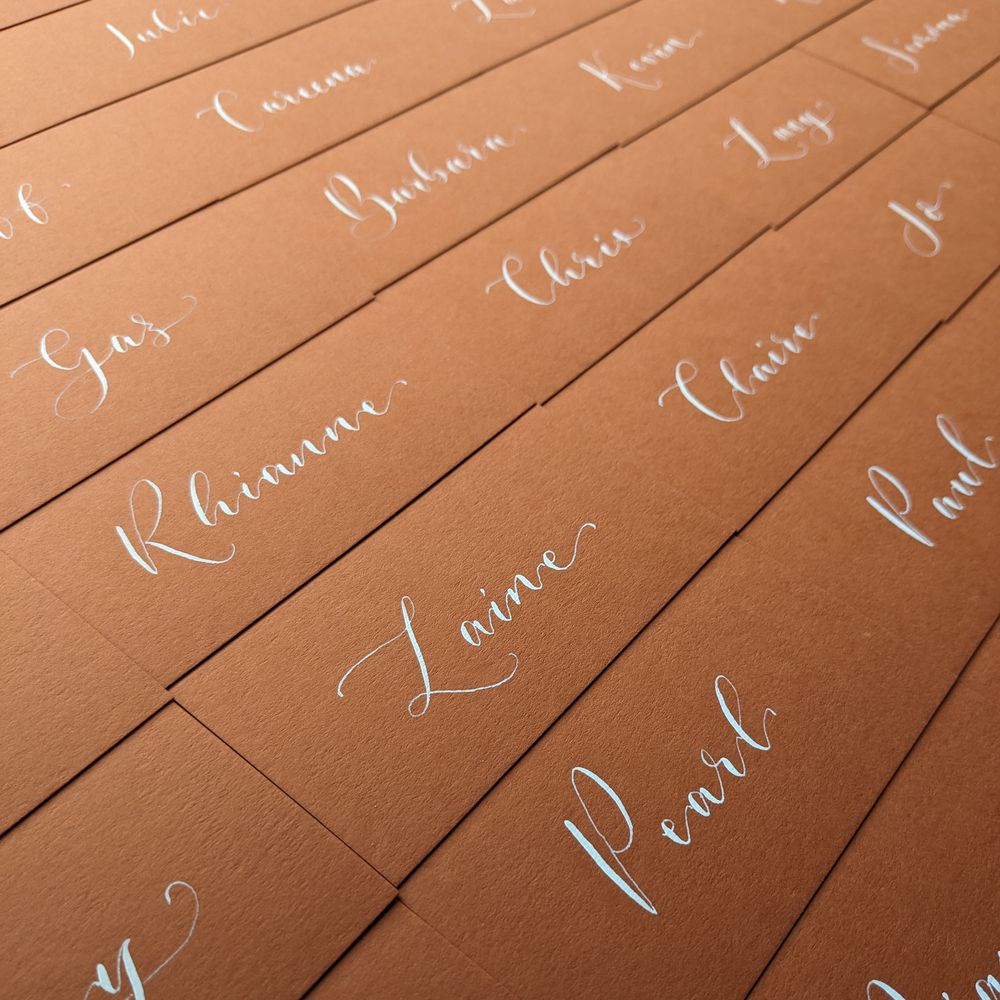 Julie
Careena
Kevin
Barbara
Lucy
Jo
Chris
Gaz
Claire
Rhianne
Paul
Laine
Pearl